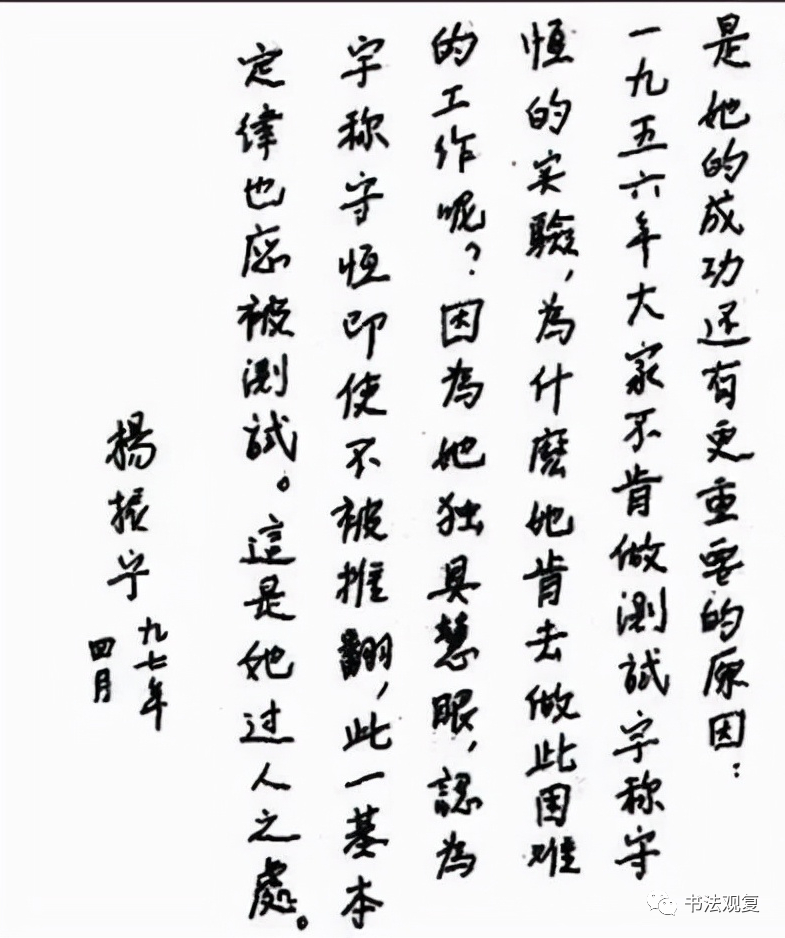 是她的成功还有更重要的原因：
一九五六年大家不肯做测試宇称守
恒的实驗，為什麽她肯去做此困难
的工作呢？因為她独具慧眼，認為
宇称守恒即使不被推翻，此一基本
定律也应被测試。這是她过人之處。
楊振宁
九七年
四月
书法观复